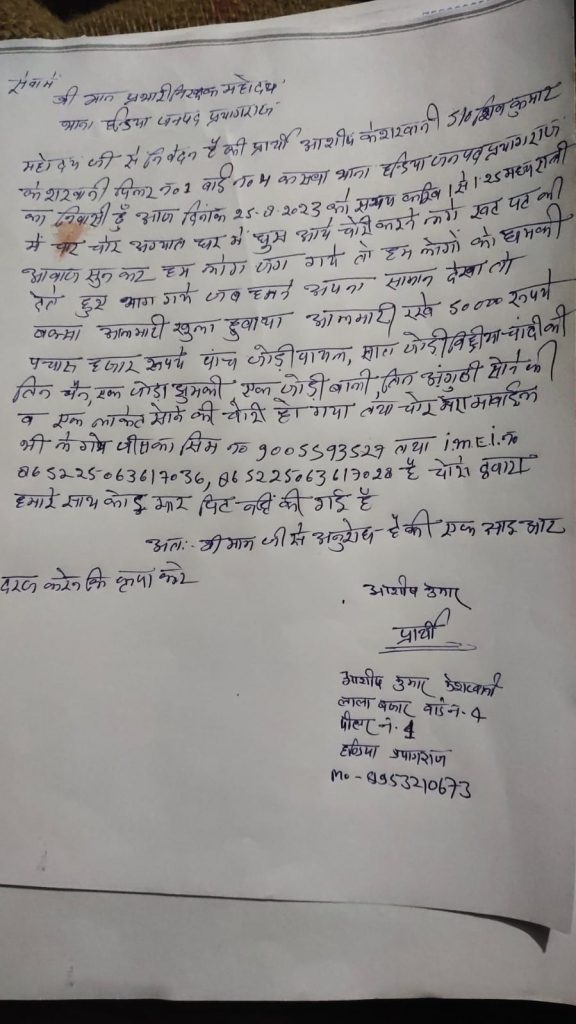 सेवा में
श्री मान प्रभारी निरीक्षक महोदय
थाना हंडिया जनपद प्रयागराज
महोदय जी से निवेदन है की प्रार्थी आशीष केशरवानी S/o शिव कुमार
केशरवानी पिलर no 1 वार्ड no 4 कस्बा थाना हंडिया जनपद प्रयागराज
का निवासी हूँ आज दिनांक 25-8-2023 को समय करिब 1 से 1:25 मध्य रात्री
में चार चोर अज्ञात घर में घुस आये चोरी करने लगे खट पट की
आवाज सुन कर हम लोग जग गये तो हम लोगों को धमकी
देते हुए भाग गये जब हमने अपना सामान देखा तो
बक्सा आलमारी खुला हुवा था आलमारी रखे 50000 रूपये
पचास हजार रूपये पांच जोड़ी पायल, सात जोड़ी बिछीया चांदी की
तिन चैन, एक जोड़ा झुमकी एक जोड़ी बाली, तिन अंगुठी सोने की
व एक लाकेट सोने की चोरी हो गया तथा चोर मेरा मोबाईल
भी ले गये जीसका सिम no 9005593527 तथा i.m.E.i. no
865225063617036, 865225063617028 है चोरो द्वारा
हमारे साथ कोई मार पिट नहीं की गई है
अतः श्री मान जी से अनुरोध है की एफ आइ आर
दरज करने कि कृपा करे
आशीष कुमार
प्रार्थी
आशीष कुमार केशरवानी
लाला बजार वार्ड नं. 4
पीलर नं. 1
हंडिया प्रयागराज
Mo - 8953210673